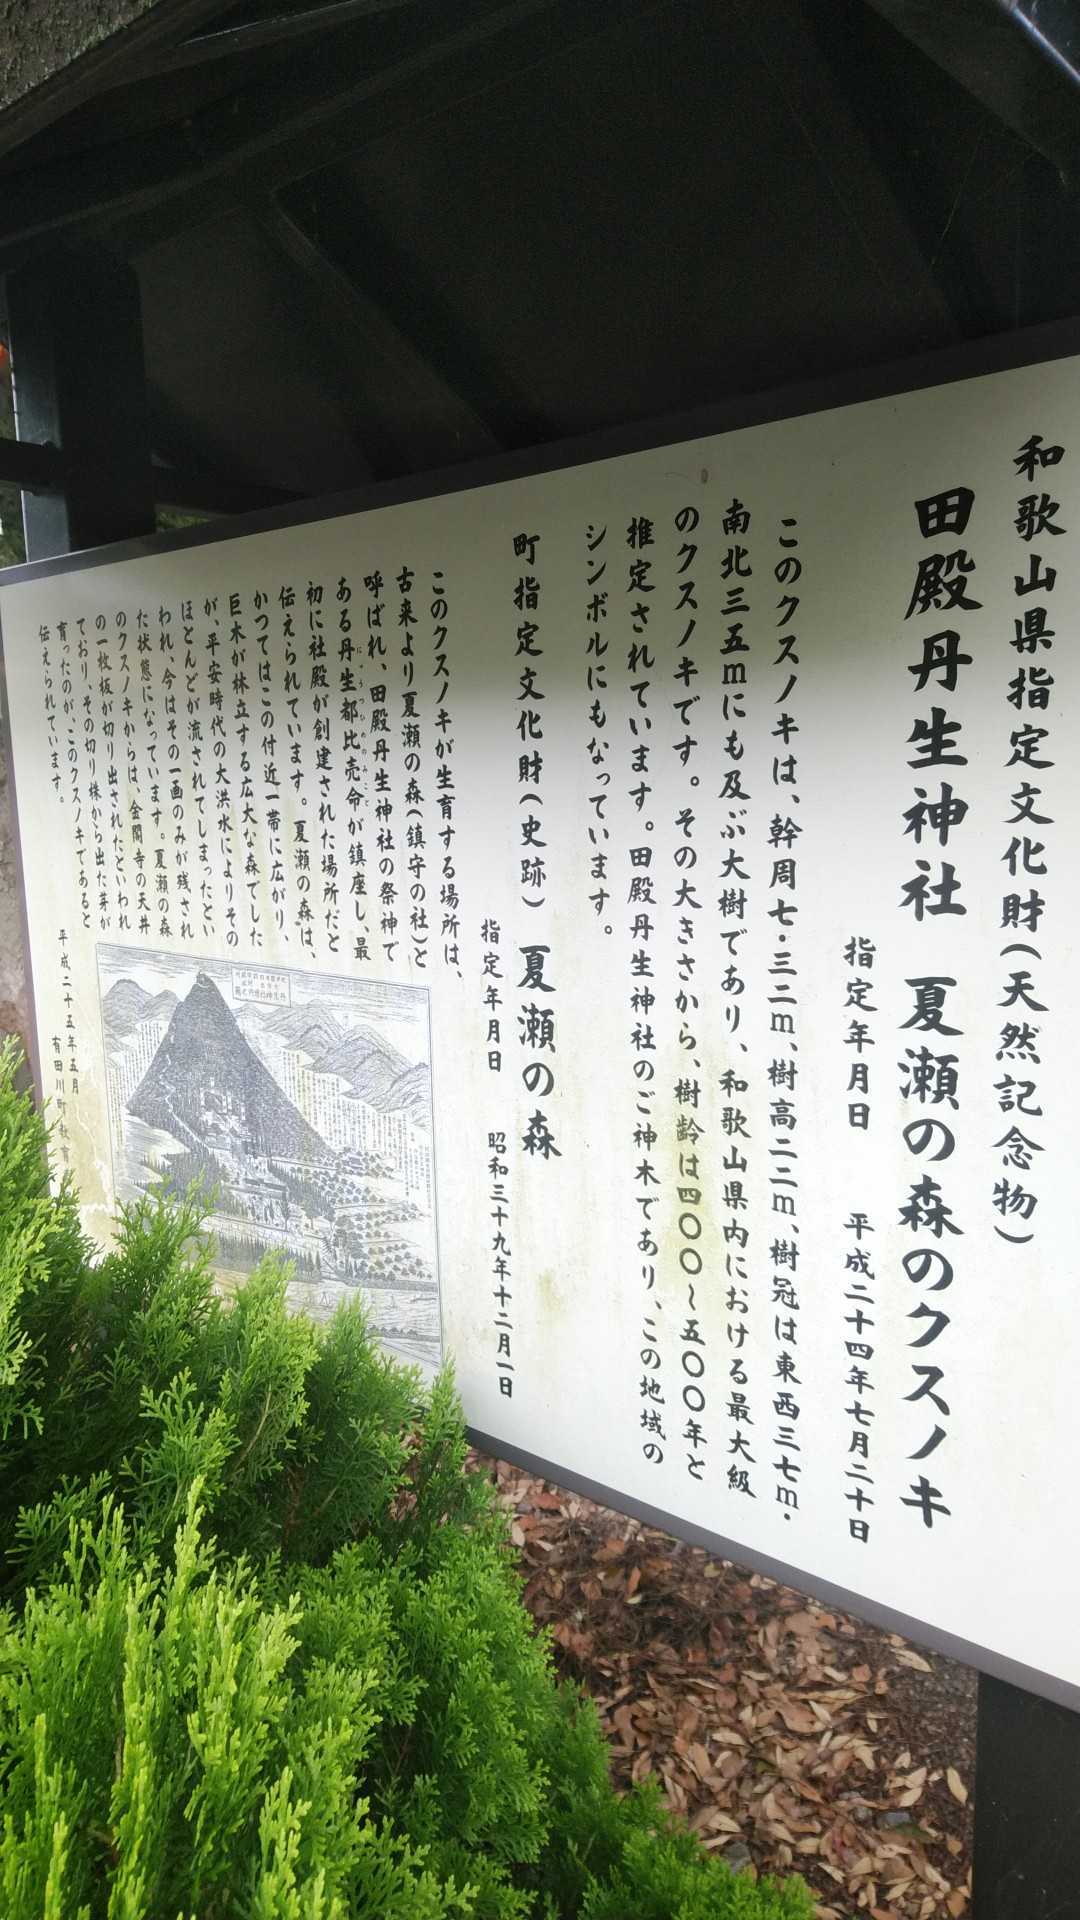 和歌山県指定文化財(天然記念物)
田殿丹生神社 夏瀬の森のクスノキ
指定年月日 平成二十四年七月二十日
このクスノキは、幹周七・三二m、樹高二二m、樹冠は東西三七m・
南北三五mにも及ぶ大樹であり、和歌山県内における最大級
のクスノキです。その大きさから、樹齢は四〇〇~五〇〇年と
推定されています。田殿丹生神社のご神木であり、この地域の
シンボルにもなっています。
町指定文化財(史跡) 夏瀬の森
指定年月日 昭和三十九年十二月一日
このクスノキが生育する場所は、
古来より夏瀬の森(鎮守の社)と
呼ばれ、田殿丹生神社の祭神で
ある丹生都比売命が鎮座し、最
にうつひめのみこと
初に社殿が創建された場所だと
伝えられています。夏瀬の森は、
かつてはこの付近一帯に広がり、
巨木が林立する広大な森でした
が、平安時代の大洪水によりその
ほとんどが流されてしまったとい
われ、今はその一画のみが残され
た状態になっています。夏瀬の森
のクスノキからは、金閣寺の天井
の一枚板が切り出されたといわれ
ており、その切り株から出た芽が
育ったのが、このクスノキであると
伝えられています。
平成二十五年五月
有田川町教育